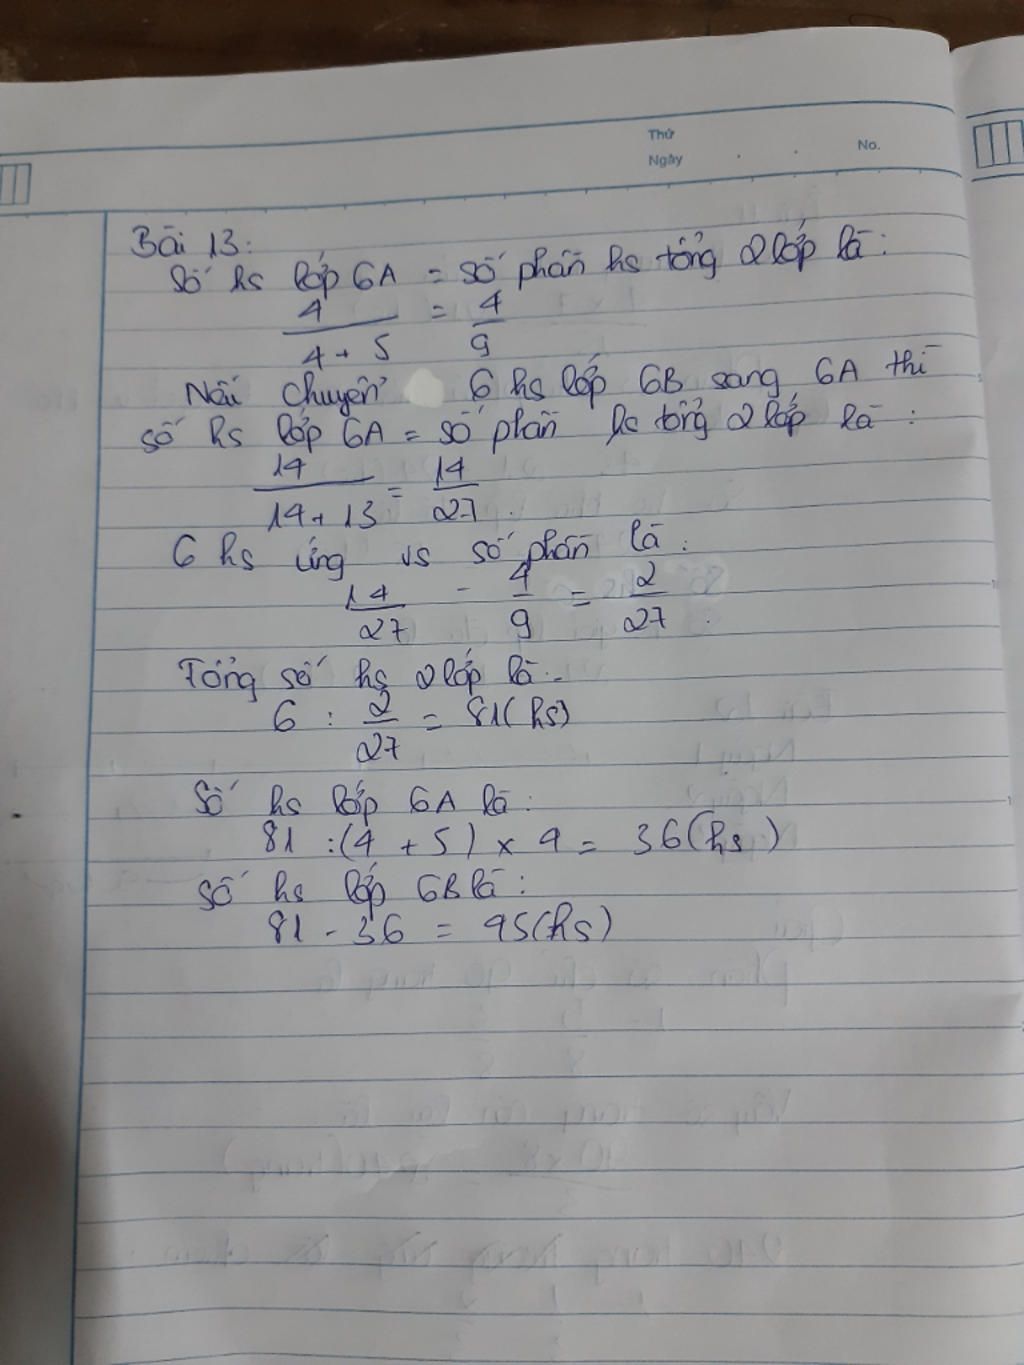 Thứ
Ngày . . No.
Bài 13:
Số hs lớp 6A = số phần hs tổng 2 lớp là:
4 / 4 + 5 = 4 / 9
Nếu chuyển 6 hs lớp 6B sang 6A thì
số hs lớp 6A = số phần hs tổng 2 lớp là:
14 / 14 + 13 = 14 / 27.
6 hs ứng vs số phần là:
14 / 27 - 4 / 9 = 2 / 27.
Tổng số hs 2 lớp là:
6 : 2 / 27 = 81 (hs)
Số hs lớp 6A là:
81 : (4 + 5) x 4 = 36 (hs)
Số hs lớp 6B là:
81 - 36 = 45 (hs)